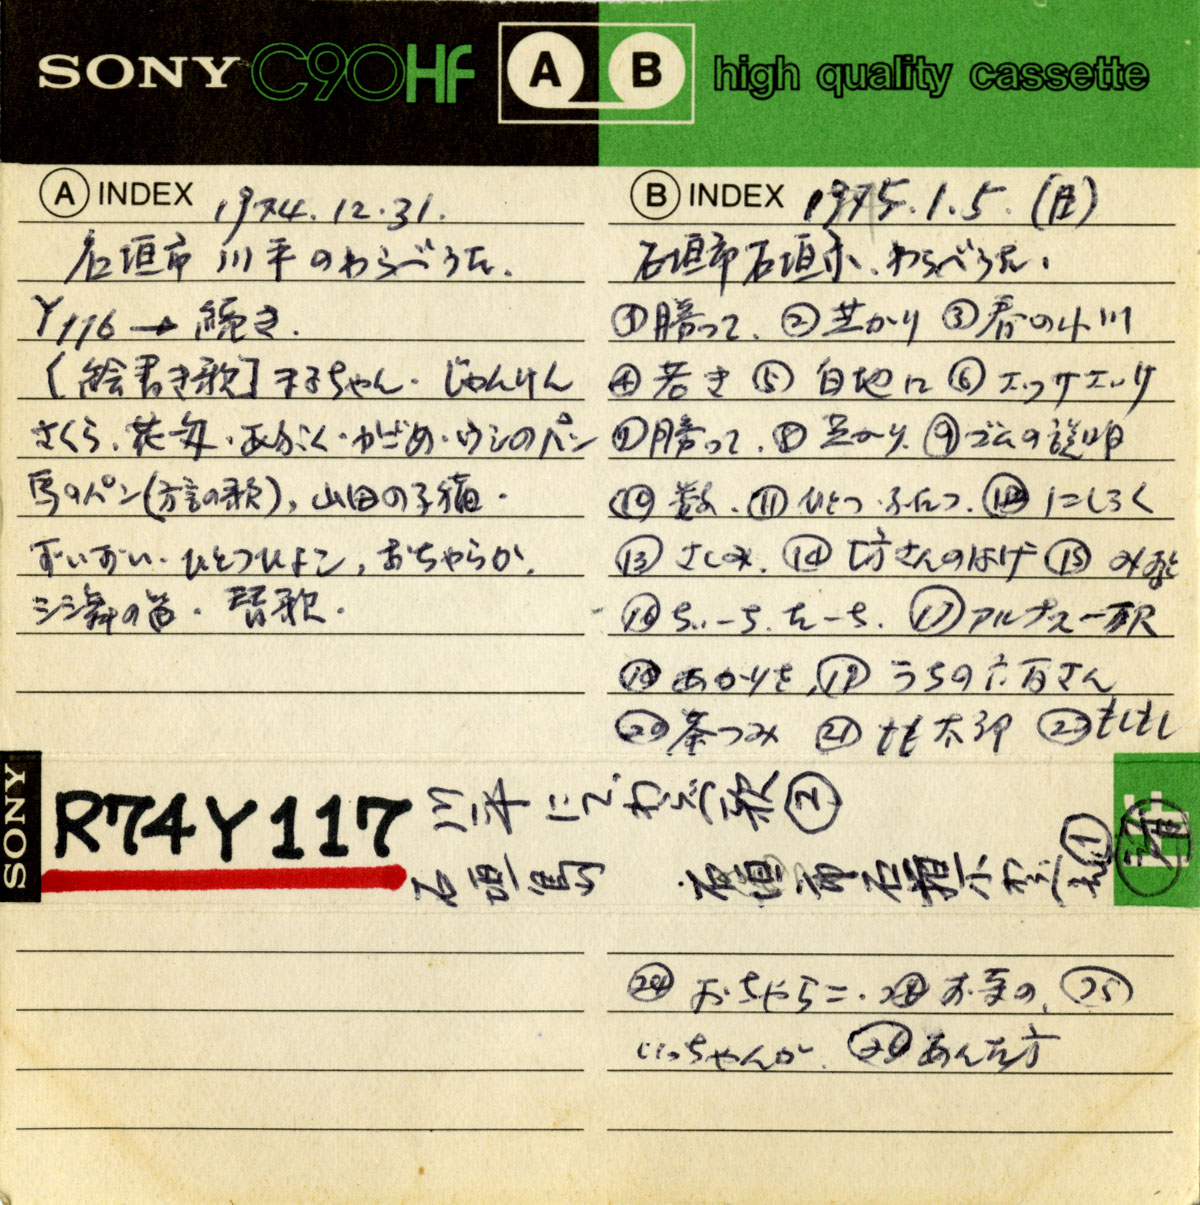 SONY C90HF A B high quality cassette
A INDEX 1974.12.31.
石垣市 川平のわらべうた.
Y116→続き.
[絵書き歌] チ子ちゃん. じゃんけん
さくら.花・あぶく・かごめ・ウシのパン
馬のパン(方言の歌), 山田の子猫.
ずいずい.ひとつひよこ, おちゃらか.
シシ舞の笛. 替歌.
B INDEX 1975.1.5.(日)
石垣市石垣小.わらべうた.
①勝って. ②芝かり ③春の小川
④若き ⑤白地に ⑥エッサエッサ
⑦勝って. ⑧芝かり. ⑨ゴムの説明
⑩数. ⑪ひとつ.ふたつ. ⑫にしろく
⑬さしみ. ⑭坊さんのはげ ⑮みなと
⑯ちぃーち.たーち. ⑰アルプス一万尺
⑱あかりを, ⑲うちの六百さん
⑳茶つみ ㉑もも太郎 ㉒もしもし
SONY
R74Y117
川平にて わらべ歌②
石垣島 石垣市石垣小わらべ歌①
㉔おちゃらこ. お寺の. ㉕
いっちゃんが. ㉖あんた方